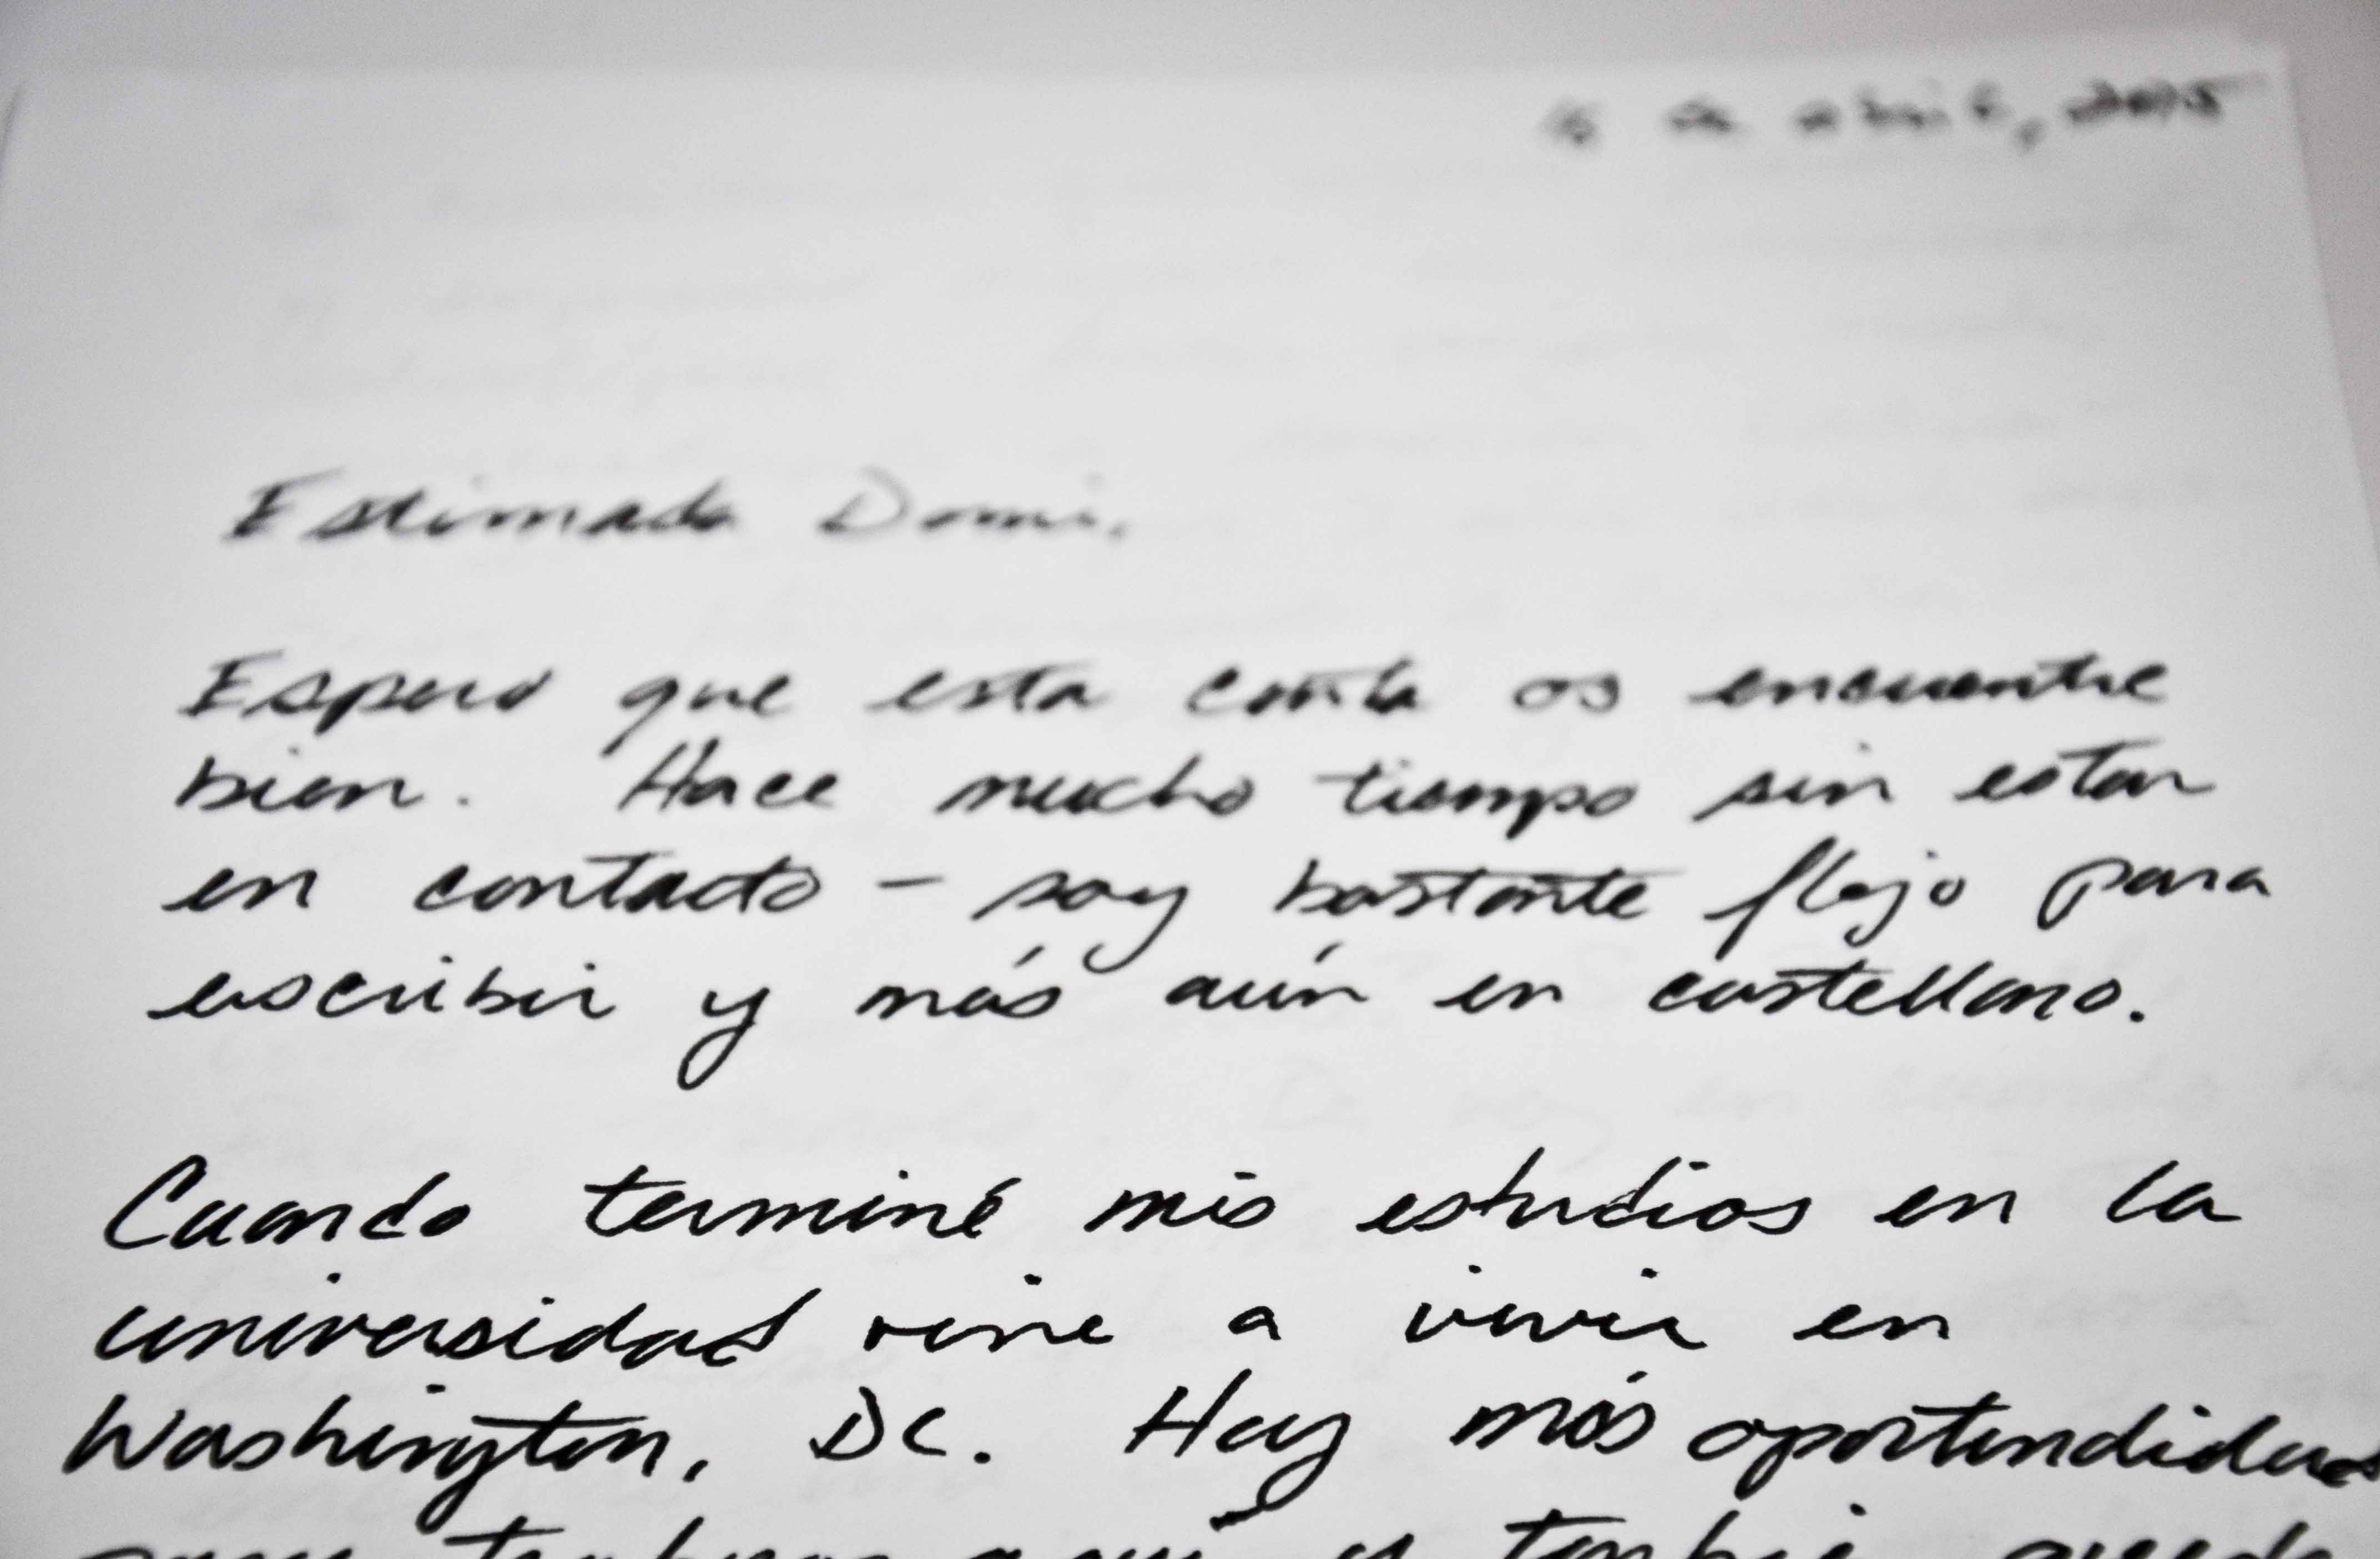 de abril, 2015
Estimada Domi,
Espero que esta carta os encuentre
bien. Hace mucho tiempo sin estar
en contacto – soy bastante flojo para
escribir y más aún en castellano.
Cuando terminé mis estudios en la
universidad vine a vivir en
Washington, DC. Hay más oportundidades
aquí y